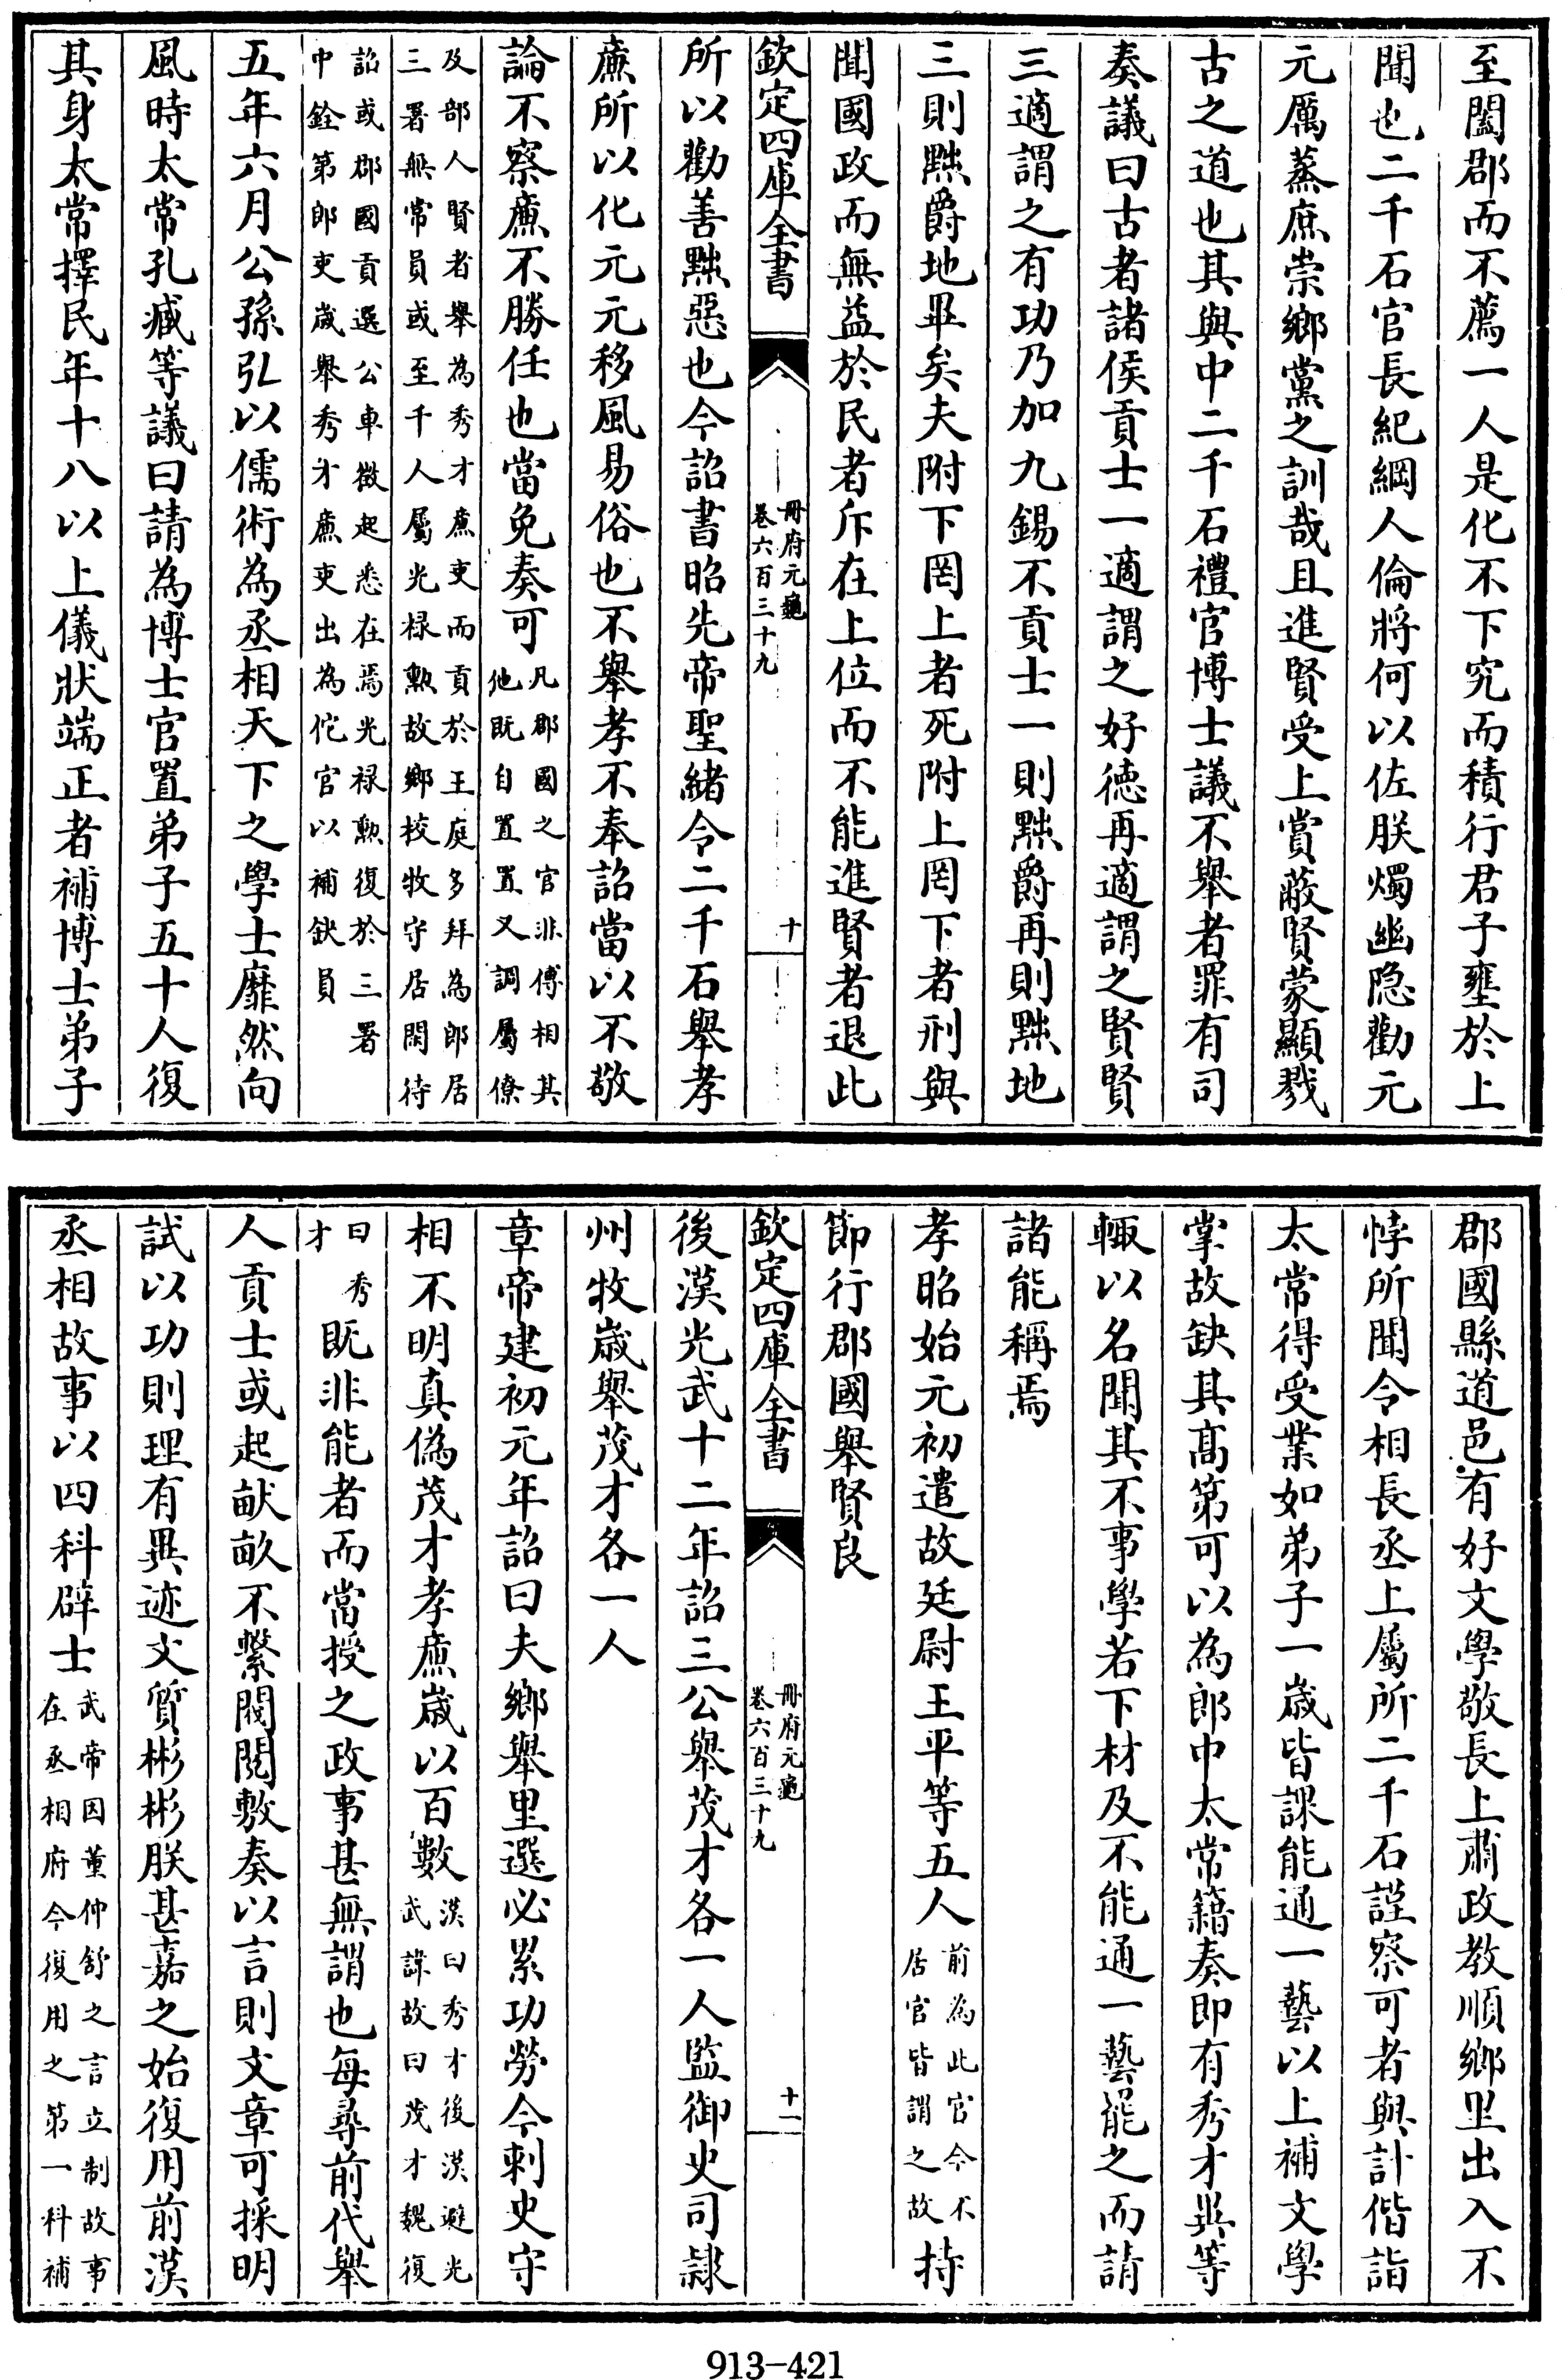 至闔郡而不薦一人是化不下究而積行君子壅於上
聞也二千石官長紀綱人倫將何以佐朕燭幽隐勸元
元厲蒸庶崇鄉黨之訓哉且進賢受上賞蔽賢蒙顯戮
古之道也其與中二千石禮官博士議不舉者罪有司
奏議曰古者諸侯貢士一適謂之好德再適謂之賢賢
三適謂之有功乃加九錫不貢士一則黜爵再則黜地
三則黜爵地畢矣夫附下罔上者死附上罔下者刑與
聞國政而無益於民者斥在上位而不能進賢者退此
欽定四庫全書
冊府元龜
卷六百三十九
十
所以勸善黜惡也今詔書昭先帝聖緒令二千石舉孝
廉所以化元元移風易俗也不舉孝不奉詔當以不敬
論不察廉不勝任也當免奏可凡郡國之官非傅相其
他既自置置又調屬僚
及部人賢者舉為秀才廉吏而貢於王庭多拜為郎居
三署無常員或至千人屬光祿勲故鄉校牧守居閑待
詔或郡國貢選公車徵起悉在焉光禄勲復於三署
中銓第郎吏歲舉秀才廉吏出為佗官以補缺員
五年六月公孫弘以儒術為丞相天下之學士靡然向
風時太常孔臧等議曰請為博士官置弟子五十人復
其身太常擇民年十八以上儀狀端正者補博士弟子
郡國縣道邑有好文學敬長上肅政教順鄉里出入不
悖所聞令相長丞上屬所二千石謹察可者與計偕詣
太常得受業如弟子一歲皆課能通一藝以上補文學
掌故缺其髙第可以為郎中太常籍奏即有秀才異等
輙以名聞其不事學若下材及不能通一藝罷之而請
諸能稱焉
孝昭始元初遣故廷尉王平等五人前為此官今不
居官皆謂之故持
節行郡國舉賢良
欽定四庫全書
冊府元龜
卷六百三十九
十一
後漢光武十二年詔三公舉茂才各一人監御史司隷
州牧歲舉茂才各一人
章帝建初元年詔曰夫鄉舉里選必累功勞今刺史守
相不明真偽茂才孝廉歲以百數漢曰秀才後漢避光
武諱故曰茂才魏復
曰秀
才既非能者而當授之政事甚無謂也每尋前代舉
人貢士或起畎畝不繫閥閲敷奏以言則文章可採明
試以功則理有異迹文質彬彬朕甚嘉之始復用前漢
丞相故事以四科辟士武帝因董仲舒之言立制故事
在丞相府今復用之第一科補
913-421